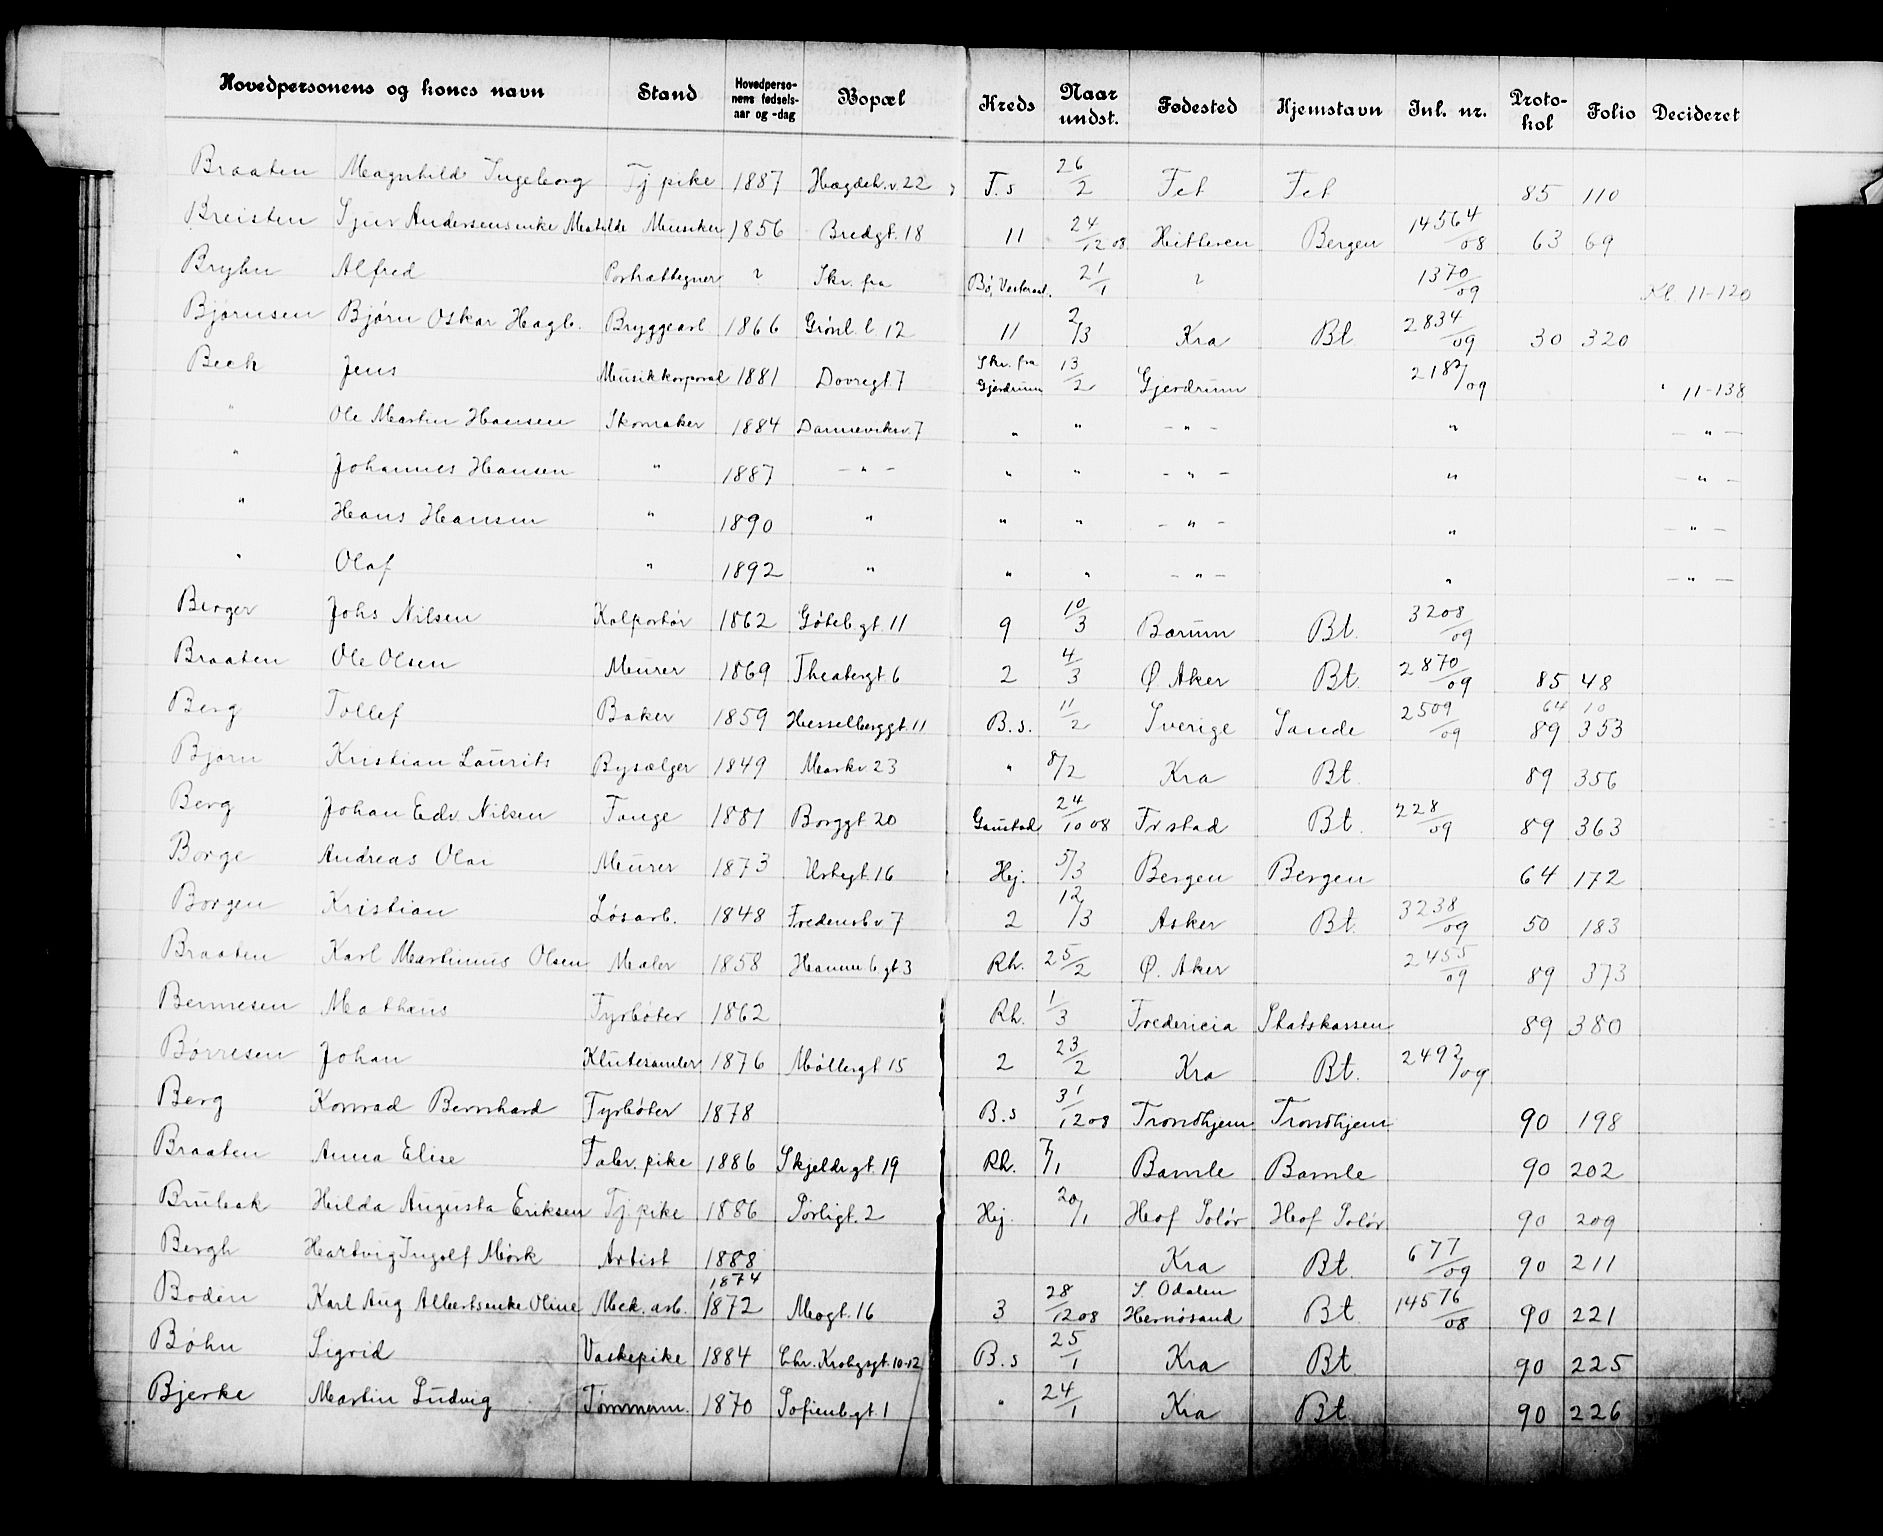 Hovedpersonens og kones navn Stand Hovedpersonens fødselsaar og -dag Bopæl Kreds Naar undst. Fødested Hjemstavn Inl. nr. Protokol Folio Decideret
Braaten Magnhild Ingeborg Tj pike 1887 Hægdeh.v. 22 F.s 26/2 Fet Fet 85 110
Breisten Sjur Andersens enke Matilde Musiker 1856 Bredgt. 18 11 24/12 08 Hitteren Bergen 14564/08 63 69
Bryhn Alfred Portrættegner ? Skr. fra Bø, Vesteraal. 21/1 ? 1370/09 Kl 11-120
Bjørnsen Bjørn Oskar Hagb. Bryggearb 1866 Grønl. l 12 11 2/3 Kra Bt 2834/09 30 320
Bech Jens Musikkorporal 1881 Dovregt 7 Skr. fra Gjerdrum 13/2 Gjerdrum 2182/09 " 11-138
" Ole Martin Hansen Skomaker 1884 Danneviksv. 7 " " - " - " - " -
" Johannes Hansen " 1887 - " - " " - " - " - " -
" Hans Hansen " 1890 " " " - " - " - " -
" Olaf " 1892 " " " - " - " - " -
Berger Johs Nilsen Kolportør 1862 Gøteb.gt. 11 9 10/3 Bærum Bt. 3208/09
Braaten Ole Olsen Murer 1869 Theatergt 6 2 4/3 Ø Aker Bt. 2870/09 85 48
Berg Tollef Baker 1859 Hesselberggt. 11 B.s. 11/2 Sverige Sande 2509/09 64 10 89 353
Bjørn Kristian Laurits Bysælger 1849 Markv. 23 " 8/2 Kra Bt. 89 356
Berg Johan Edv Nilsen Fange 1881 Borggt 20 Gaustad 24/10 08 Frstad Bt. 228/09 89 363
Borge Andreas Olai Murer 1873 Urtegt. 16 Hj. 5/3 Bergen Bergen 64 172
Borgen Kristian Løsarb. 1848 Fredensb v. 7 2 12/3 Asker Bt. 3238/09 50 183
Braaten Karl Martinius Olsen Maler 1858 Hammeb.gt 3 Rh. 25/2 Ø. Aker 2455/09 89 373
Bermesen Mathæus Fyrbøter 1862 Rh. 1/3 Fredericia Statskassen 89 380
Børresen Johan Klutesamler 1876 Møllergt 15 2 23/2 Kra Bt. 2492/09
Berg Konrad Bernhard Fyrbøter 1878 B.s 31/12 08 Trondhjem Trondhjem 90 198
Braaten Anna Elise Fabr. pike 1886 Skjeldsgt. 19 Rh. 7/1 Bamle Bamle 90 202
Brubak Hilda Augusta Eriksen Tj. pike 1886 Pørligt. 2 Hj. 20/1 Hof Solør Hof Solør 90 209
Bergh Hartvig Ingolf Mørk Artist 1888 Kra Bt. 677/09 90 211
Boden Karl Aug Alberts enke Oline Mek. arb. 1874 1872 Maogt. 16 3 28/12 08 S. Odalen Hernøsand Bt. 14576/08 90 221
Bøhn Sigrid Vaskepike 1884 Chr. Krohgsgt. 10-12 B.s 25/1 Kra Bt. 90 225
Bjerke Martin Ludvig Tømmerm. 1870 Sofienb.gt. 1 " 24/1 Kra Bt 90 226